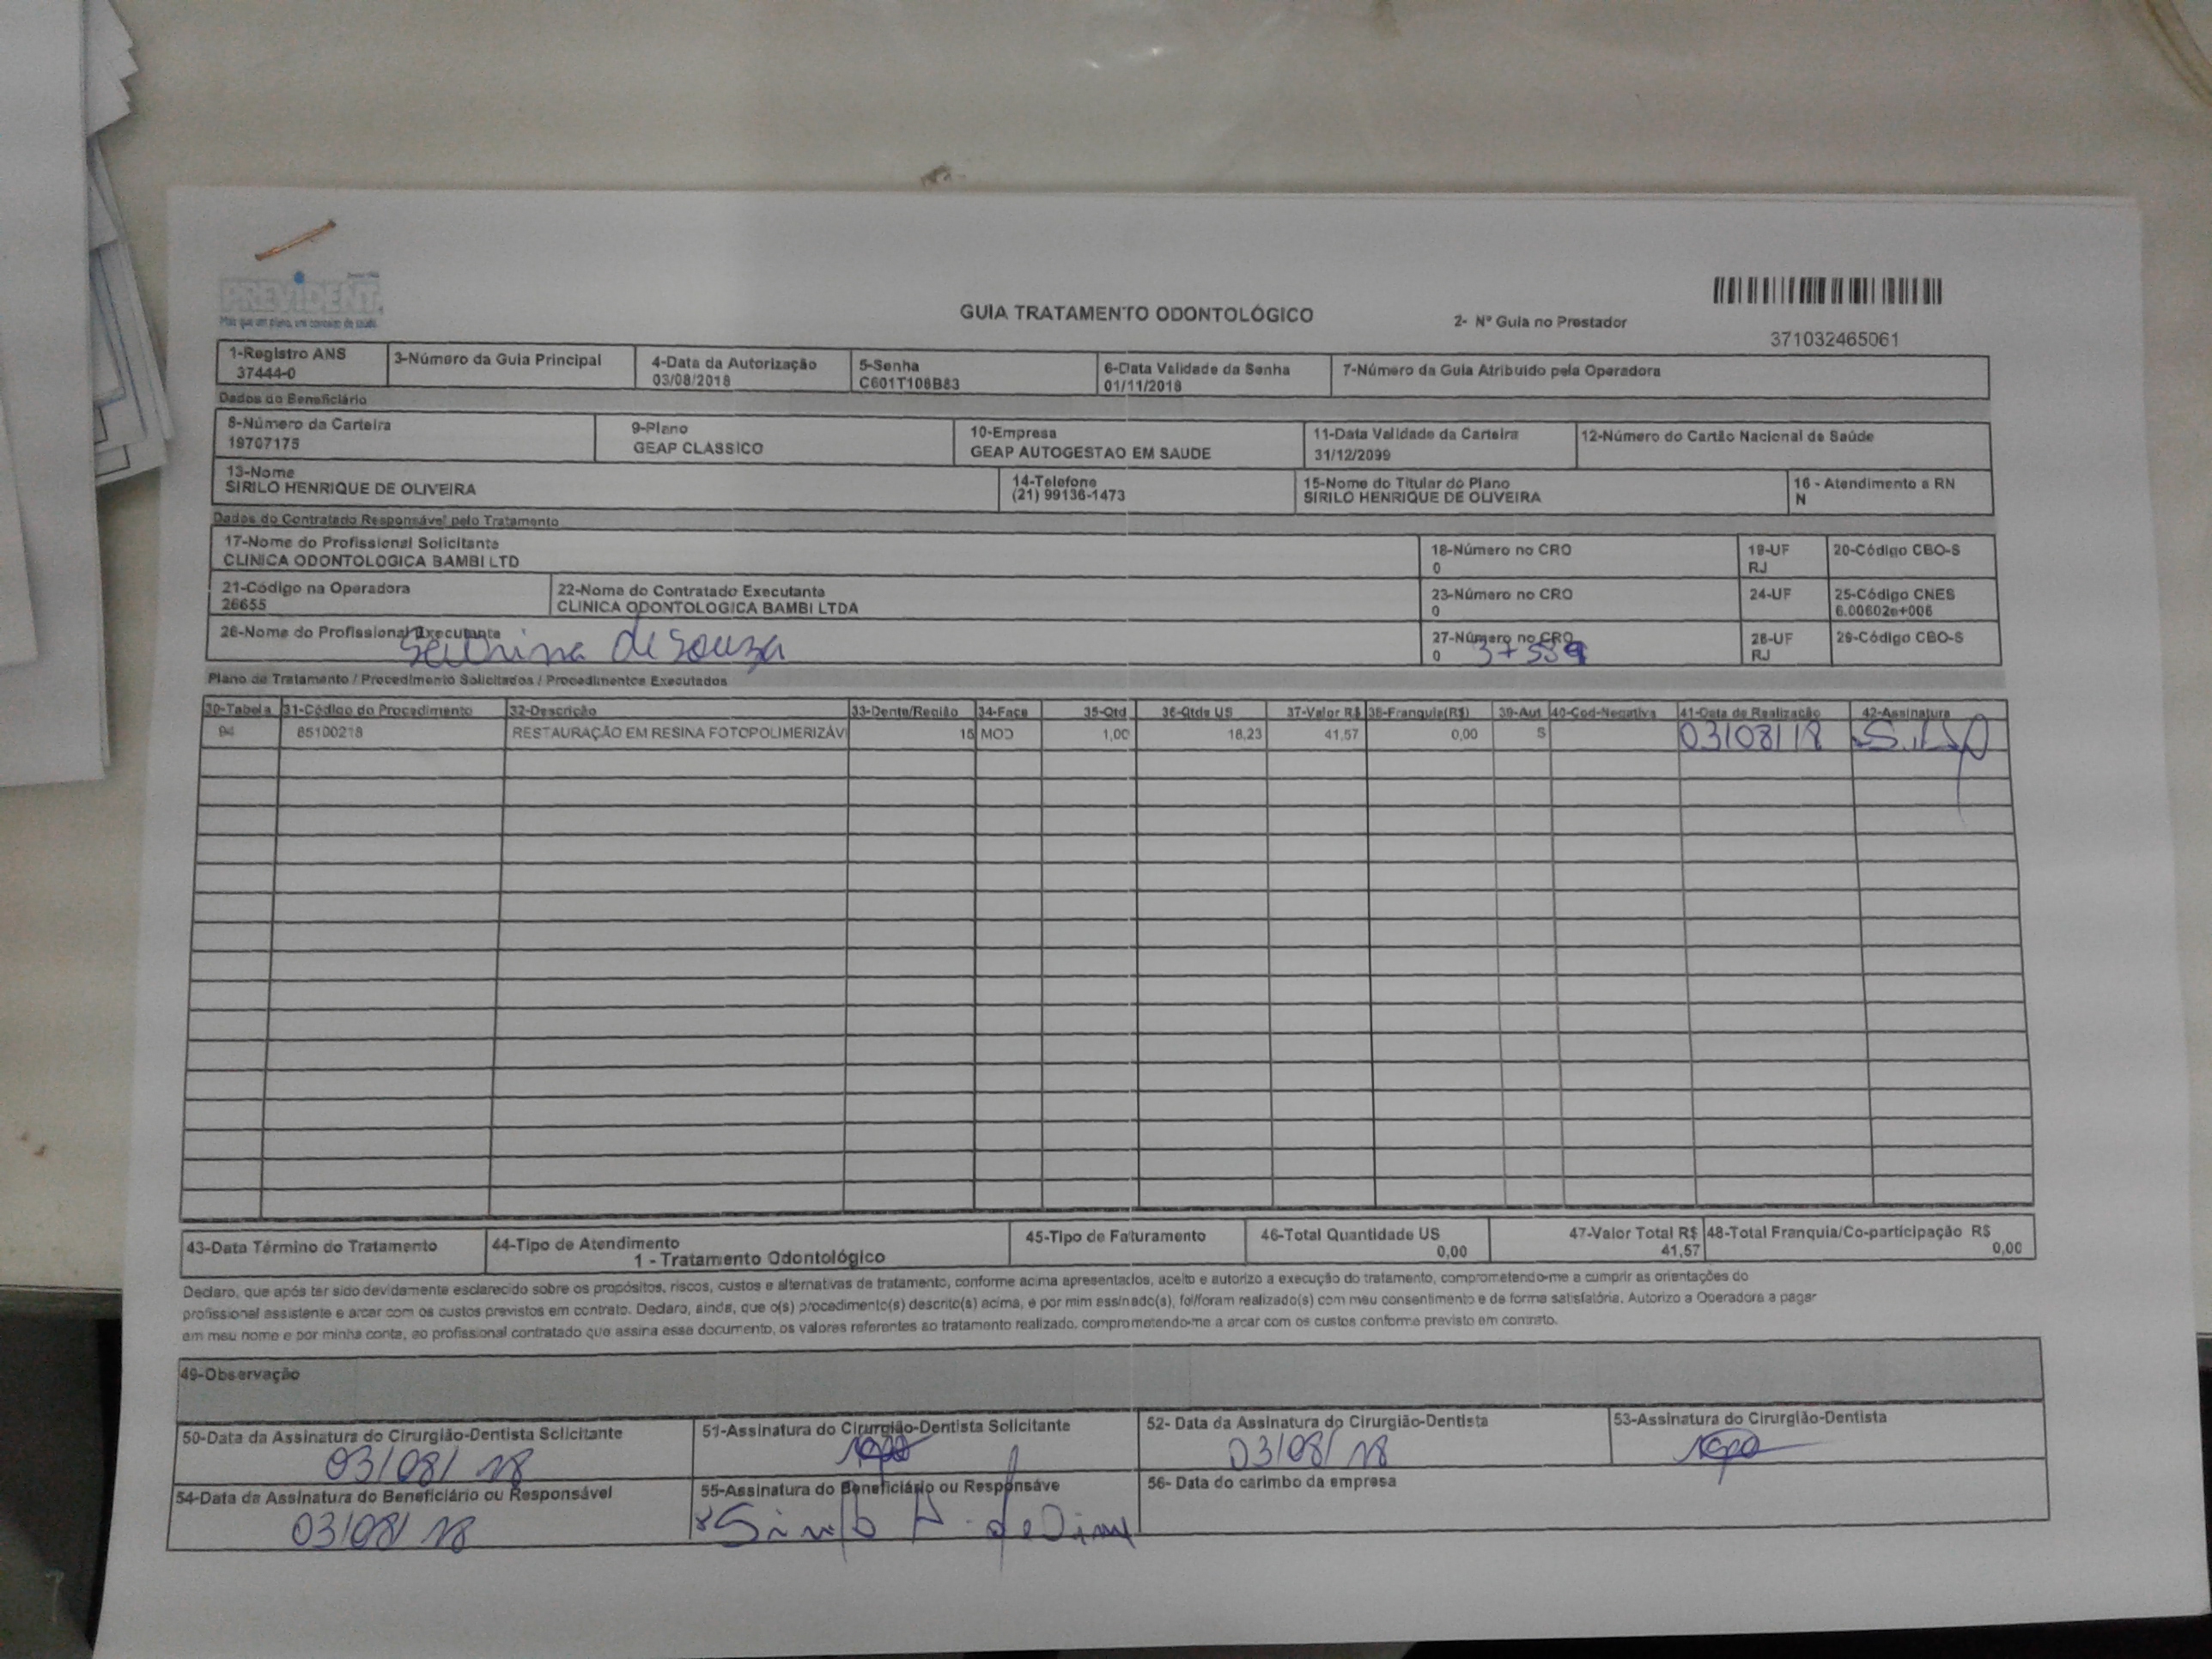 PREVIDENT
Mais que um plano, um conceito de saúde.
GUIA TRATAMENTO ODONTOLÓGICO
2- Nº Guia no Prestador
371032465061
1-Registro ANS
37444-0
3-Número da Guia Principal
4-Data da Autorização
03/08/2018
5-Senha
C601T106B83
6-Data Validade da Senha
01/11/2018
7-Número da Guia Atribuído pela Operadora
Dados do Beneficiário
8-Número da Carteira
19707175
9-Plano
GEAP CLASSICO
10-Empresa
GEAP AUTOGESTAO EM SAUDE
11-Data Validade da Carteira
31/12/2099
12-Número do Cartão Nacional de Saúde
13-Nome
SIRILO HENRIQUE DE OLIVEIRA
14-Telefone
(21) 99136-1473
15-Nome do Titular do Plano
SIRILO HENRIQUE DE OLIVEIRA
16 - Atendimento a RN
N
Dados do Contratado Responsável pelo Tratamento
17-Nome do Profissional Solicitante
CLINICA ODONTOLOGICA BAMBI LTD
18-Número no CRO
0
19-UF
RJ
20-Código CBO-S
21-Código na Operadora
26655
22-Nome do Contratado Executante
CLINICA ODONTOLOGICA BAMBI LTDA
23-Número no CRO
0
24-UF
25-Código CNES
6.00602e+006
26-Nome do Profissional Executante
de Souza
27-Número no CRO
0
28-UF
RJ
29-Código CBO-S
Plano de Tratamento / Procedimento Solicitados / Procedimentos Executados
30-Tabela 31-Código do Procedimento 32-Descrição 33-Dente/Região 34-Face 35-Qtd 36-Qtde US 37-Valor R$ 38-Franquia(R$) 39-Aut 40-Cod-Negativa 41-Data de Realização 42-Assinatura
94 85100218 RESTAURAÇÃO EM RESINA FOTOPOLIMERIZÁV 15 MOD 1,00 18,23 41,57 0,00 S 03/08/18
43-Data Término do Tratamento
44-Tipo de Atendimento
1 - Tratamento Odontológico
45-Tipo de Faturamento
46-Total Quantidade US
0,00
47-Valor Total R$
41,57
48-Total Franquia/Co-participação R$
0,00
Declaro, que após ter sido devidamente esclarecido sobre os propósitos, riscos, custos e alternativas de tratamento, conforme acima apresentados, aceito e autorizo a execução do tratamento, comprometendo-me a cumprir as orientações do
profissional assistente e arcar com os custos previstos em contrato. Declaro, ainda, que o(s) procedimento(s) descrito(s) acima, e por mim assinado(s), foi/foram realizado(s) com meu consentimento e de forma satisfatória. Autorizo a Operadora a pagar
em meu nome e por minha conta, ao profissional contratado que assina esse documento, os valores referentes ao tratamento realizado, comprometendo-me a arcar com os custos conforme previsto em contrato.
49-Observação
50-Data da Assinatura do Cirurgião-Dentista Solicitante
03/08/18
51-Assinatura do Cirurgião-Dentista Solicitante
52- Data da Assinatura do Cirurgião-Dentista
03/08/18
53-Assinatura do Cirurgião-Dentista
54-Data da Assinatura do Beneficiário ou Responsável
03/08/18
55-Assinatura do Beneficiário ou Responsáve
56- Data do carimbo da empresa